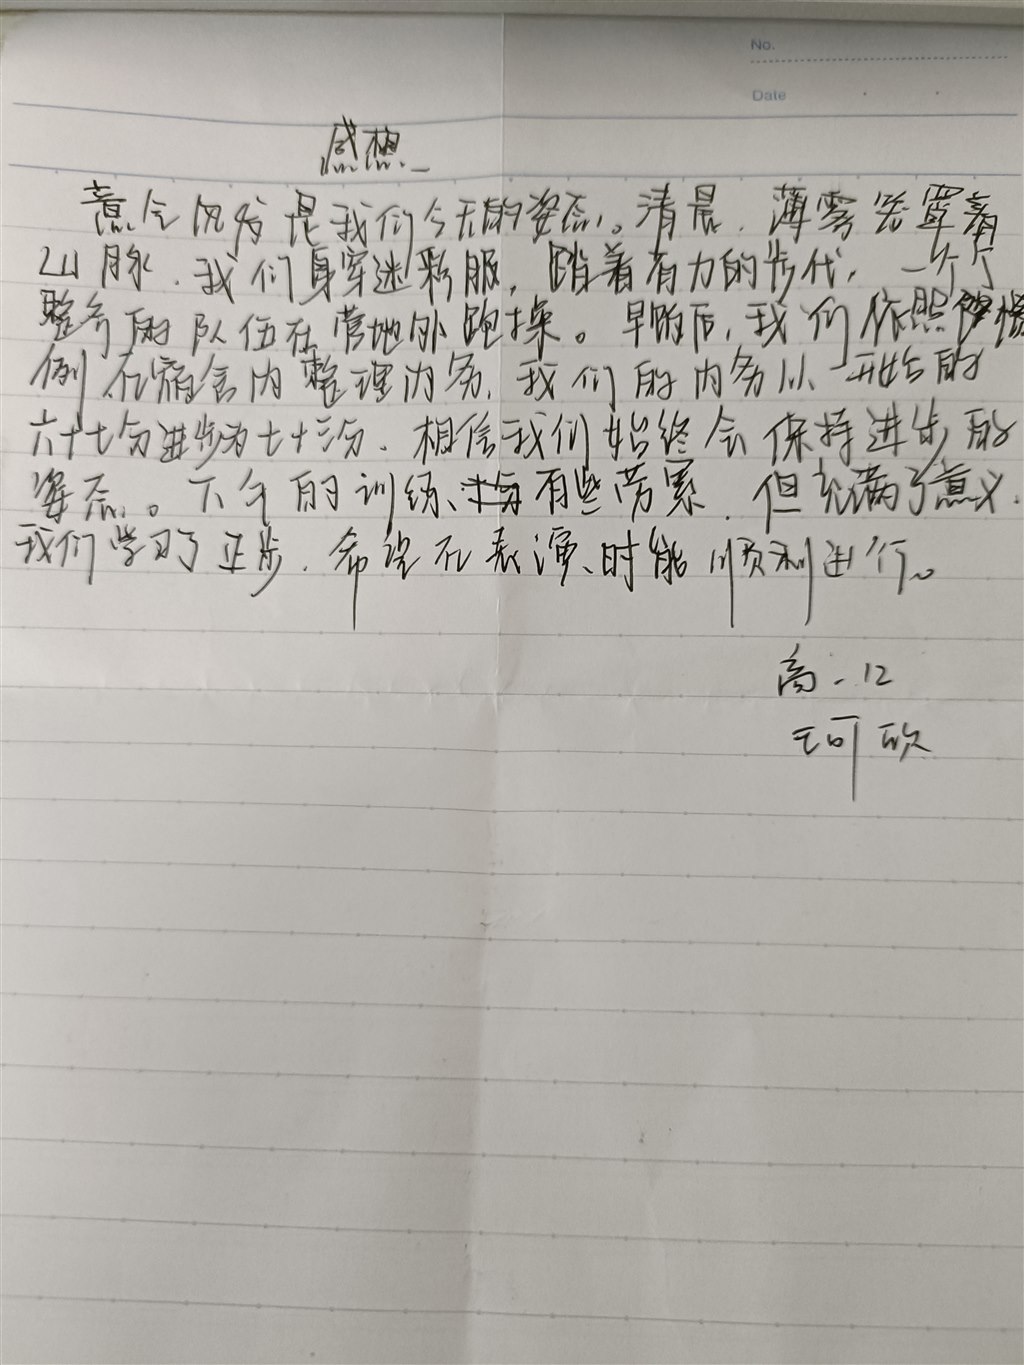 No.
Date
感想
意气风发是我们今天的姿态。清晨,薄雾笼罩着
山脉,我们身穿迷彩服,踏着有力的步伐,一个个
整齐的队伍在营地外跑操。早晚后,我们依照
例在宿舍内整理内务,我们的内务从一开始的
六十七分进步为七十三分,相信我们始终会保持进步的
姿态。下午的训练、有些劳累,但充满了意义.
我们学习了正步,希望在表演时能顺利进行。
高一.12
王可欣